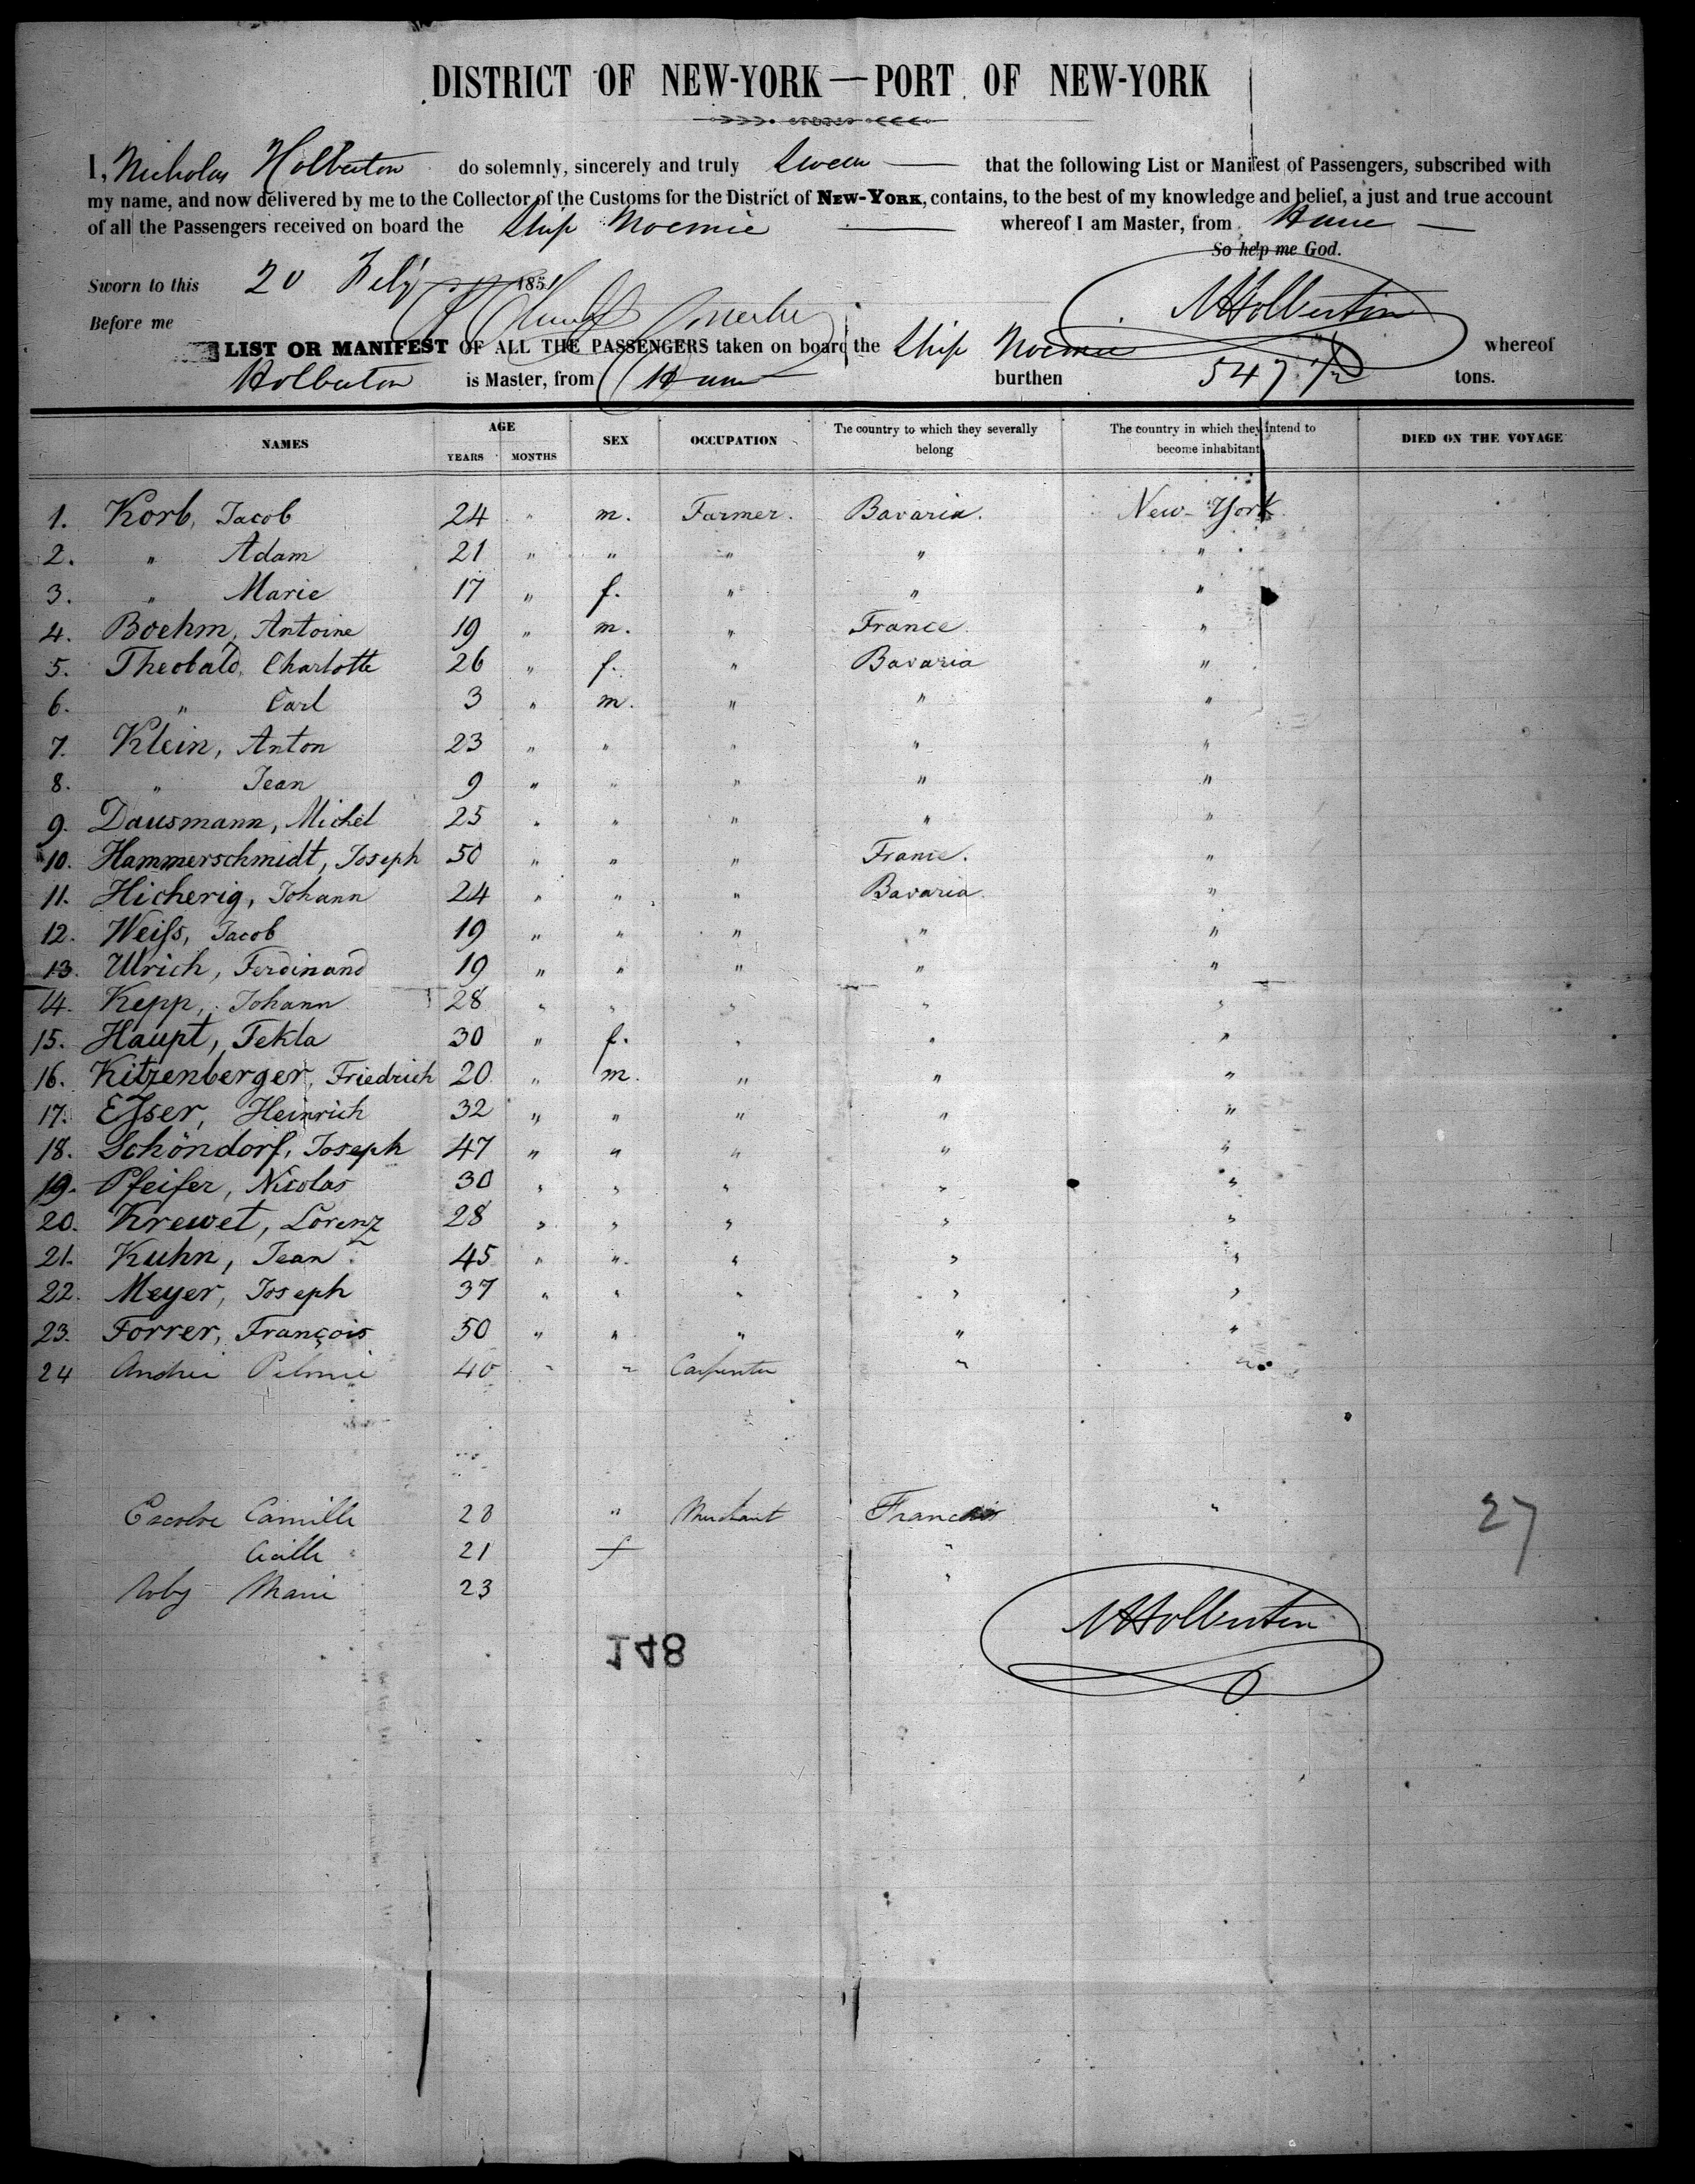 DISTRICT OF NEW-YORK — PORT OF NEW-YORK
I, Nicholas Holberton do solemnly, sincerely and truly Swear — that the following List or Manifest of Passengers, subscribed with
my name, and now delivered by me to the Collector of the Customs for the District of NEW-YORK, contains, to the best of my knowledge and belief, a just and true account
of all the Passengers received on board the Ship Noemie — whereof I am Master, from Havre —
So help me God.
Sworn to this 20 Feby 1851
NHolberton
Before me
LIST OR MANIFEST OF ALL THE PASSENGERS taken on board the Ship Noemie whereof
Holberton is Master, from Havre burthen 547 tons.
NAMES AGE YEARS MONTHS SEX OCCUPATION The country to which they severally belong The country in which they intend to become inhabitant DIED ON THE VOYAGE
1. Korb, Jacob 24 " m. Farmer. Bavaria. New-York
2. " Adam 21 " " " " "
3. " Marie 17 " f. " " "
4. Boehm, Antoine 19 " m. " France. "
5. Theobald, Charlotte 26 " f. " Bavaria "
6. " Carl 3 " m. " " "
7. Klein, Anton 23 " " " " "
8. " Jean 9 " " " " "
9. Dausmann, Michel 25 " " " " "
10. Hammerschmidt, Joseph 50 " " " France. "
11. Hicherig, Johann 24 " " " Bavaria. "
12. Weiſs, Jacob 19 " " " " "
13. Ulrich, Ferdinand 19 " " " " "
14. Kepp, Johann 28 " " " " "
15. Haupt, Tekla 30 " f. " " "
16. Kitzenberger, Friedrich 20 " m. " " "
17. Eſser, Heinrich 32 " " " " "
18. Schöndorf, Joseph 47 " " " " "
19. Pfeifer, Nicolas 30 " " " " "
20. Krewet, Lorenz 28 " " " " "
21. Kuhn, Jean 45 " " " " "
22. Meyer, Joseph 37 " " " " "
23. Forrer, François 50 " " " " "
24 40 " " Carpenter " "
Camille 28 " Merchant France "
27
21 f "
Marie 23 "
NHolberton
148